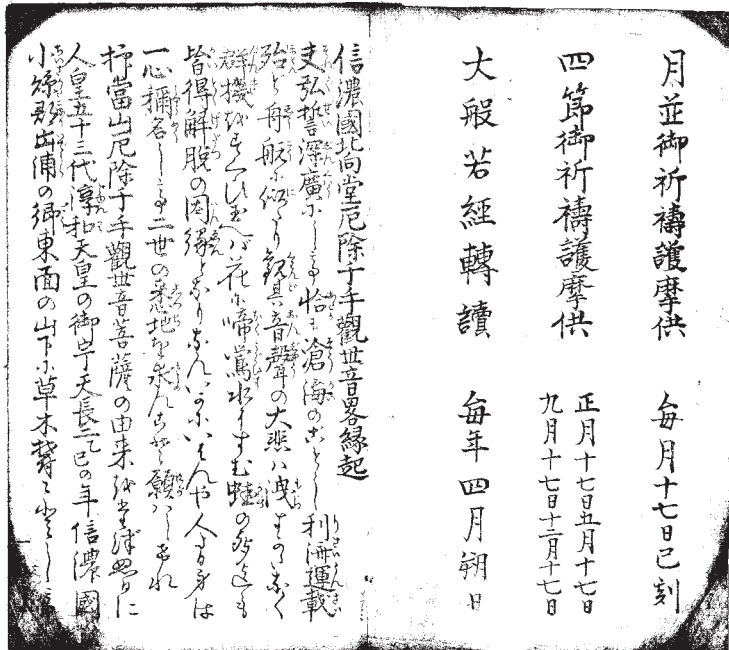 月並御祈禱護摩供 毎月十七日巳刻
四節御祈禱護摩供 正月十七日五月十七日
九月十七日十二月十七日
大般若經轉讀 毎年四月朔日
信濃國北向堂厄除千手觀世音畧縁起
夫弘誓深廣にして恰も滄海のごとし利済運載
殆ど舟航に似たり観其音聲の大悲ハ洩すことなく
群機をすくひ玉へば花に啼鶯水にすむ蛙の聲迄も
皆得解脱の因縁となりなんいかにいはんや人として身は
一心稱名し二世の悉地を求んこそ願ハしけれ
抑當山厄除千手觀世音菩薩の由来を尋るに
人皇五十三代淳和天皇の御宇天長二乙巳の年信濃國
小縣郡出浦の郷東面の山下に草木